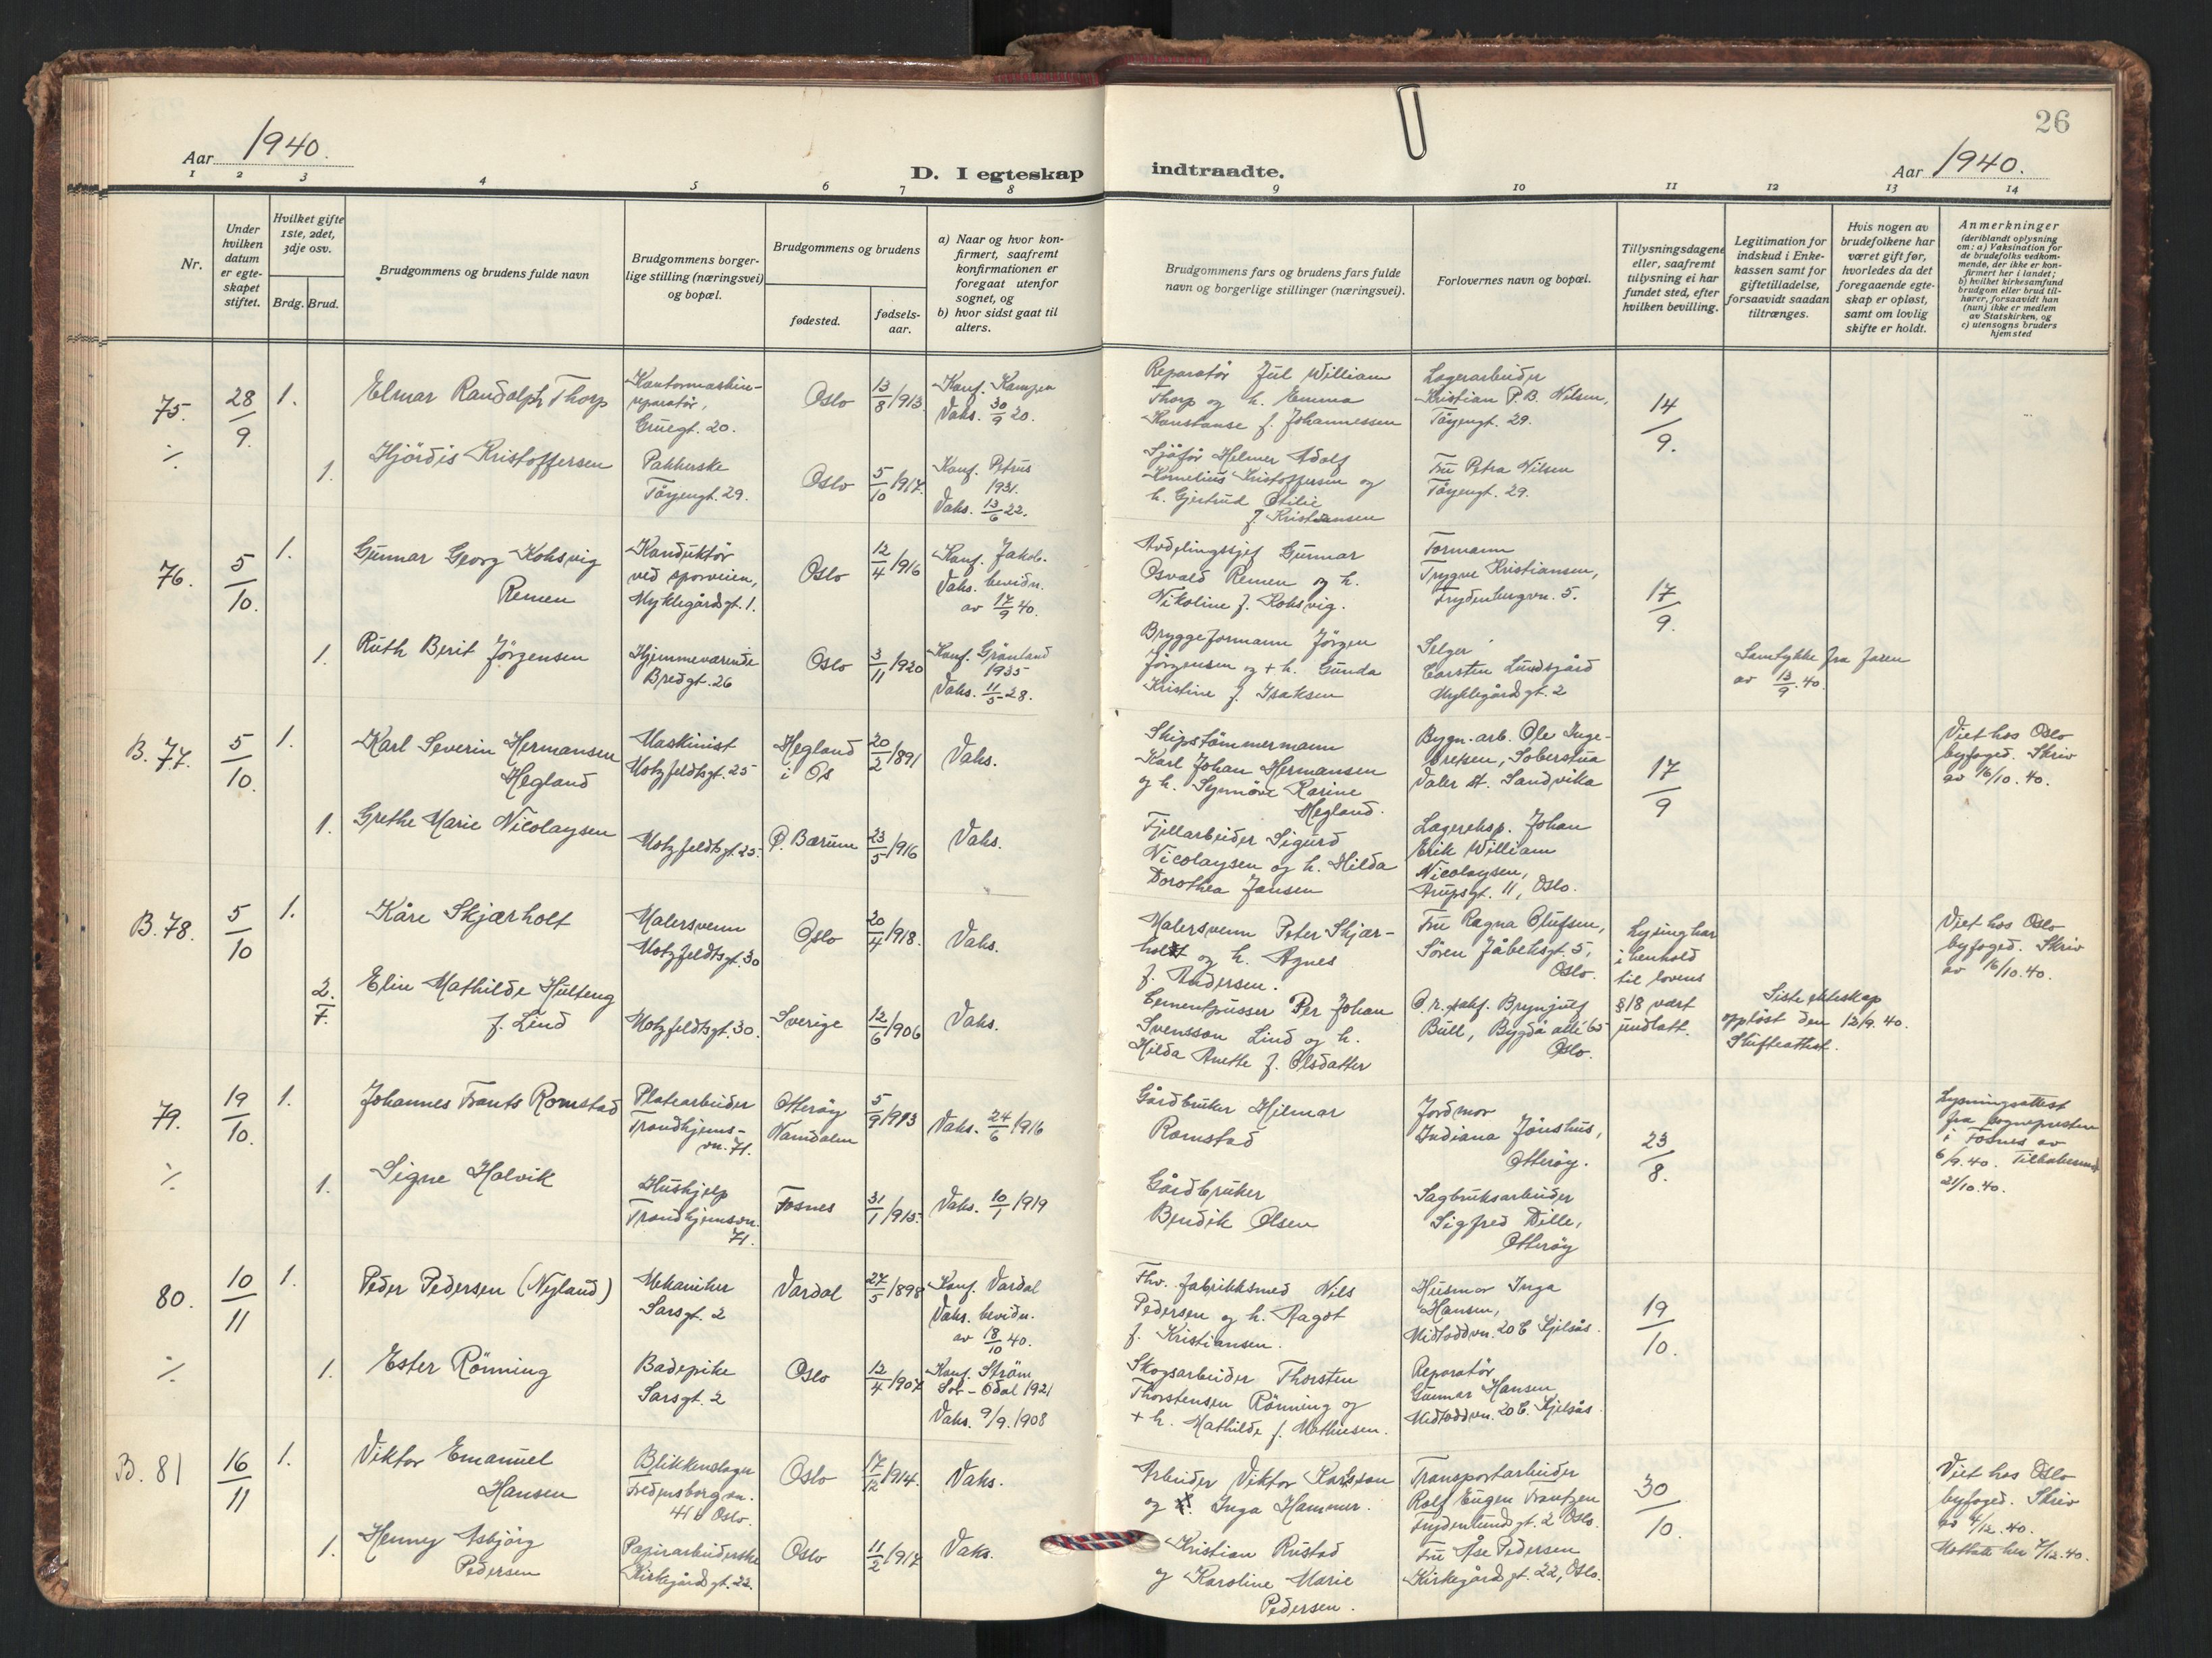 26
Aar 1940.
D. I egteskap indtraadte.
Aar 1940.
1 2 3 4 5 6 7 8 9 10 11 12 13 14
Nr.
Under hvilken datum er egteskapet stiftet.
Hvilket gifte 1ste, 2det, 3dje osv.
Brdg. Brud.
Brudgommens og brudens fulde navn
Brudgommens borgerlige stilling (næringsvei) og bopæl.
Brudgommens og brudens
fødested.
fødselsaar.
a) Naar og hvor konfirmert, saafremt konfirmationen er foregaat utenfor sognet, og
b) hvor sidst gaat til alters.
Brudgommens fars og brudens fars fulde navn og borgerlige stillinger (næringsvei).
Forlovernes navn og bopæl.
Tillysningsdagene eller, saafremt tillysning ei har fundet sted, efter hvilken bevilling.
Legitimation for indskud i Enkekassen samt for giftetilladelse, forsaavidt saadan tiltrænges.
Hvis nogen av brudefolkene har været gift før, hvorledes da det foregaaende egteskap er opløst, samt om lovlig skifte er holdt.
Anmerkninger
(deriblandt oplysning om: a) Vaksination for de brudefolks vedkommende, der ikke er konfirmert her i landet;
b) hvilket kirkesamfund brudgom eller brud tilhører, forsaavidt han (hun) ikke er medlem av Statskirken, og
c) utensogns bruders hjemsted
75. 28/9. 1.
Elmar Randolph Thorp
Kontormaskinreparatør,
Gruegt. 20.
Oslo
13/8 1913.
Konf. Kampen
Vaks. 30/9 20.
Reparatør Jul William
Thorp og h. Emma
Konstanse f. Johannessen
Lagerarbeider
Kristian P.B. Nilsen,
Tøyengt. 29.
14/9.
1.
Hjördis Kristoffersen
Pakkerske
Tøyengt. 29.
Oslo
5/10 1917.
Konf. Petrus
1931.
Vaks. 13/6 22.
Sjåfør Helmer Adolf
Kornelius Kristoffersen og
h. Gjertrud Otilie
f. Kristiansen
Fru Petra Nilsen
Tøyengt. 29.
76. 5/10. 1.
Gunnar Georg Kohsvig
Remen
Konduktør
ved sporveien,
Myklegårdsgt. 1.
Oslo
12/4 1916
Konf. Jakob.
Vaks. bevidn.
av 17/9 40.
Avdelingssjef Gunnar
Osvald Remen og h.
Nikoline f. Kohsvig.
Formann
Trygve Kristiansen,
Frydenbergvn. 5.
17/9.
1.
Ruth Berit Jörgensen
Hjemmeværende
Bredgt. 26
Oslo
3/11 1920
Konf. Grønland
1935
Vaks. 11/5 28.
Bryggeformann Jørgen
Jørgensen og + h. Gunda
Kristine f. Isaksen
Selger
Carsten Lundsgård
Myklegårdsgt. 2
Samtykke fra faren
av 13/9. 40.
B. 77. 5/10. 1.
Karl Severin Hermansen
Hegland
Maskinist
Motzfeldtsgt. 25
Hegland
i Os
20/2 1891
Vaks.
Skipstömmermann
Karl Johan Hermansen
og h. Synnöve Karine
Hegland.
Bygn.arb. Ole Ingebretsen,
Valer st. Sandvika
17/9
Viet hos Oslo
byfoged. Skriv
av 16/10. 40.
1.
Grethe Marie Nicolaysen
Motzfeldtsgt. 25.
Ø. Bærum
23/5 1916
Vaks.
Fjellarbeider Sigurd
Nicolaysen og h. Hilda
Dorothea Jansen
Lagereksp. Johan
Erik William
Nicolaysen,
Arupsgt. 11, Oslo.
B. 78. 5/10 1.
Kåre Skjærholt
Malersvenn
Motzfeldtsgt. 30
Oslo
20/4 1918.
Vaks.
Malersvenn Peter Skjærholt
og h. Agnes
f. Andersen.
Fru Ragna Olufsen,
Sören Jåbeksgt. 5,
Oslo.
Lysing har
i henhold
til lovens
§ 18 vært
undlatt.
Viet hos Oslo
byfoged. Skriv
av 16/10. 40.
2.
F.
Elin Mathilde Hulteng
f. Lind
Motzfeldtsgt. 30.
Sverige
12/6 1906
Vaks.
Cementpusser Per Johan
Svensson Lind og h.
Hilda Anette f. Olsdatter
O.r.sakf. Brynjulf
Bull, Bygdö allé 65
Oslo.
Siste ekteskap
opplöst den 12/9. 40.
Skifteattest.
79. 19/10. 1.
Johannes Frants Romstad
Platearbeider
Trondhjemsvn. 71.
Otteröy
Namdalen
5/9 1913
Vaks. 24/6 1916
Gårdbruker Hilmar
Romstad
Jordmor
Indiana Jönshus,
Otteröy.
23/8.
Lysningsattest
fra sognepresten
i Fosnes av
6/9. 40.
21/10. 40.
1.
Signe Holvik
Hushjelp
Trondhjemsvn.
71.
Fosnes
31/1 1915.
Vaks. 10/1 1919
Gårdbruker
Bendik Olsen
Sagbruksarbeider
Sigfred Dille,
Otteröy
80. 10/11 1.
Peder Pedersen (Nyland)
Mekaniker
Sarsgt. 2
Vardal
27/5 1898
Konf. Vardal
Vaks. bevidn.
av 18/10 40.
Fhv. fabrikksmed Nils
Pedersen og h. Ragot
f. Kristiansen.
Husmor Inga
Hansen,
Midtoddvn. 20 B Kjelsås.
19/10.
1.
Ester Rönning
Badepike
Sarsgt. 2
Oslo
12/4 1907
Konf. Ström
Sör-Odal 1921
Vaks. 9/9. 1908
Skogsarbeider Thorsten
Thorstensen Rönning og
+ h. Mathilde f. Mathiesen.
Reparatör
Gunnar Hansen
Midtoddvn. 20 B. Kjelsås
B. 81 16/11 1.
Viktor Emanuel
Hansen
Blikkenslager
Fredensborgvn.
41 b Oslo.
Oslo
17/12 1914.
Vaks.
Arbeider Viktor Karlsson
og Inga Hammer.
Transportarbeider
Rolf Eugen Frantzen
Frydenlundsgt. 2 Oslo.
30/10.
Viet hos Oslo
byfoged. Skriv
av 4/12. 40.
Mottatt her 7/12. 40.
1.
Henny Asbjörg
Pedersen
Papirarbeiderske
Kirkegårdsgt. 22.
Oslo
11/2 1917
Vaks.
Kristian Rustad
og Karoline Marie
Pedersen.
Fru Åse Pedersen
Kirkegårdsgt. 22, Oslo.